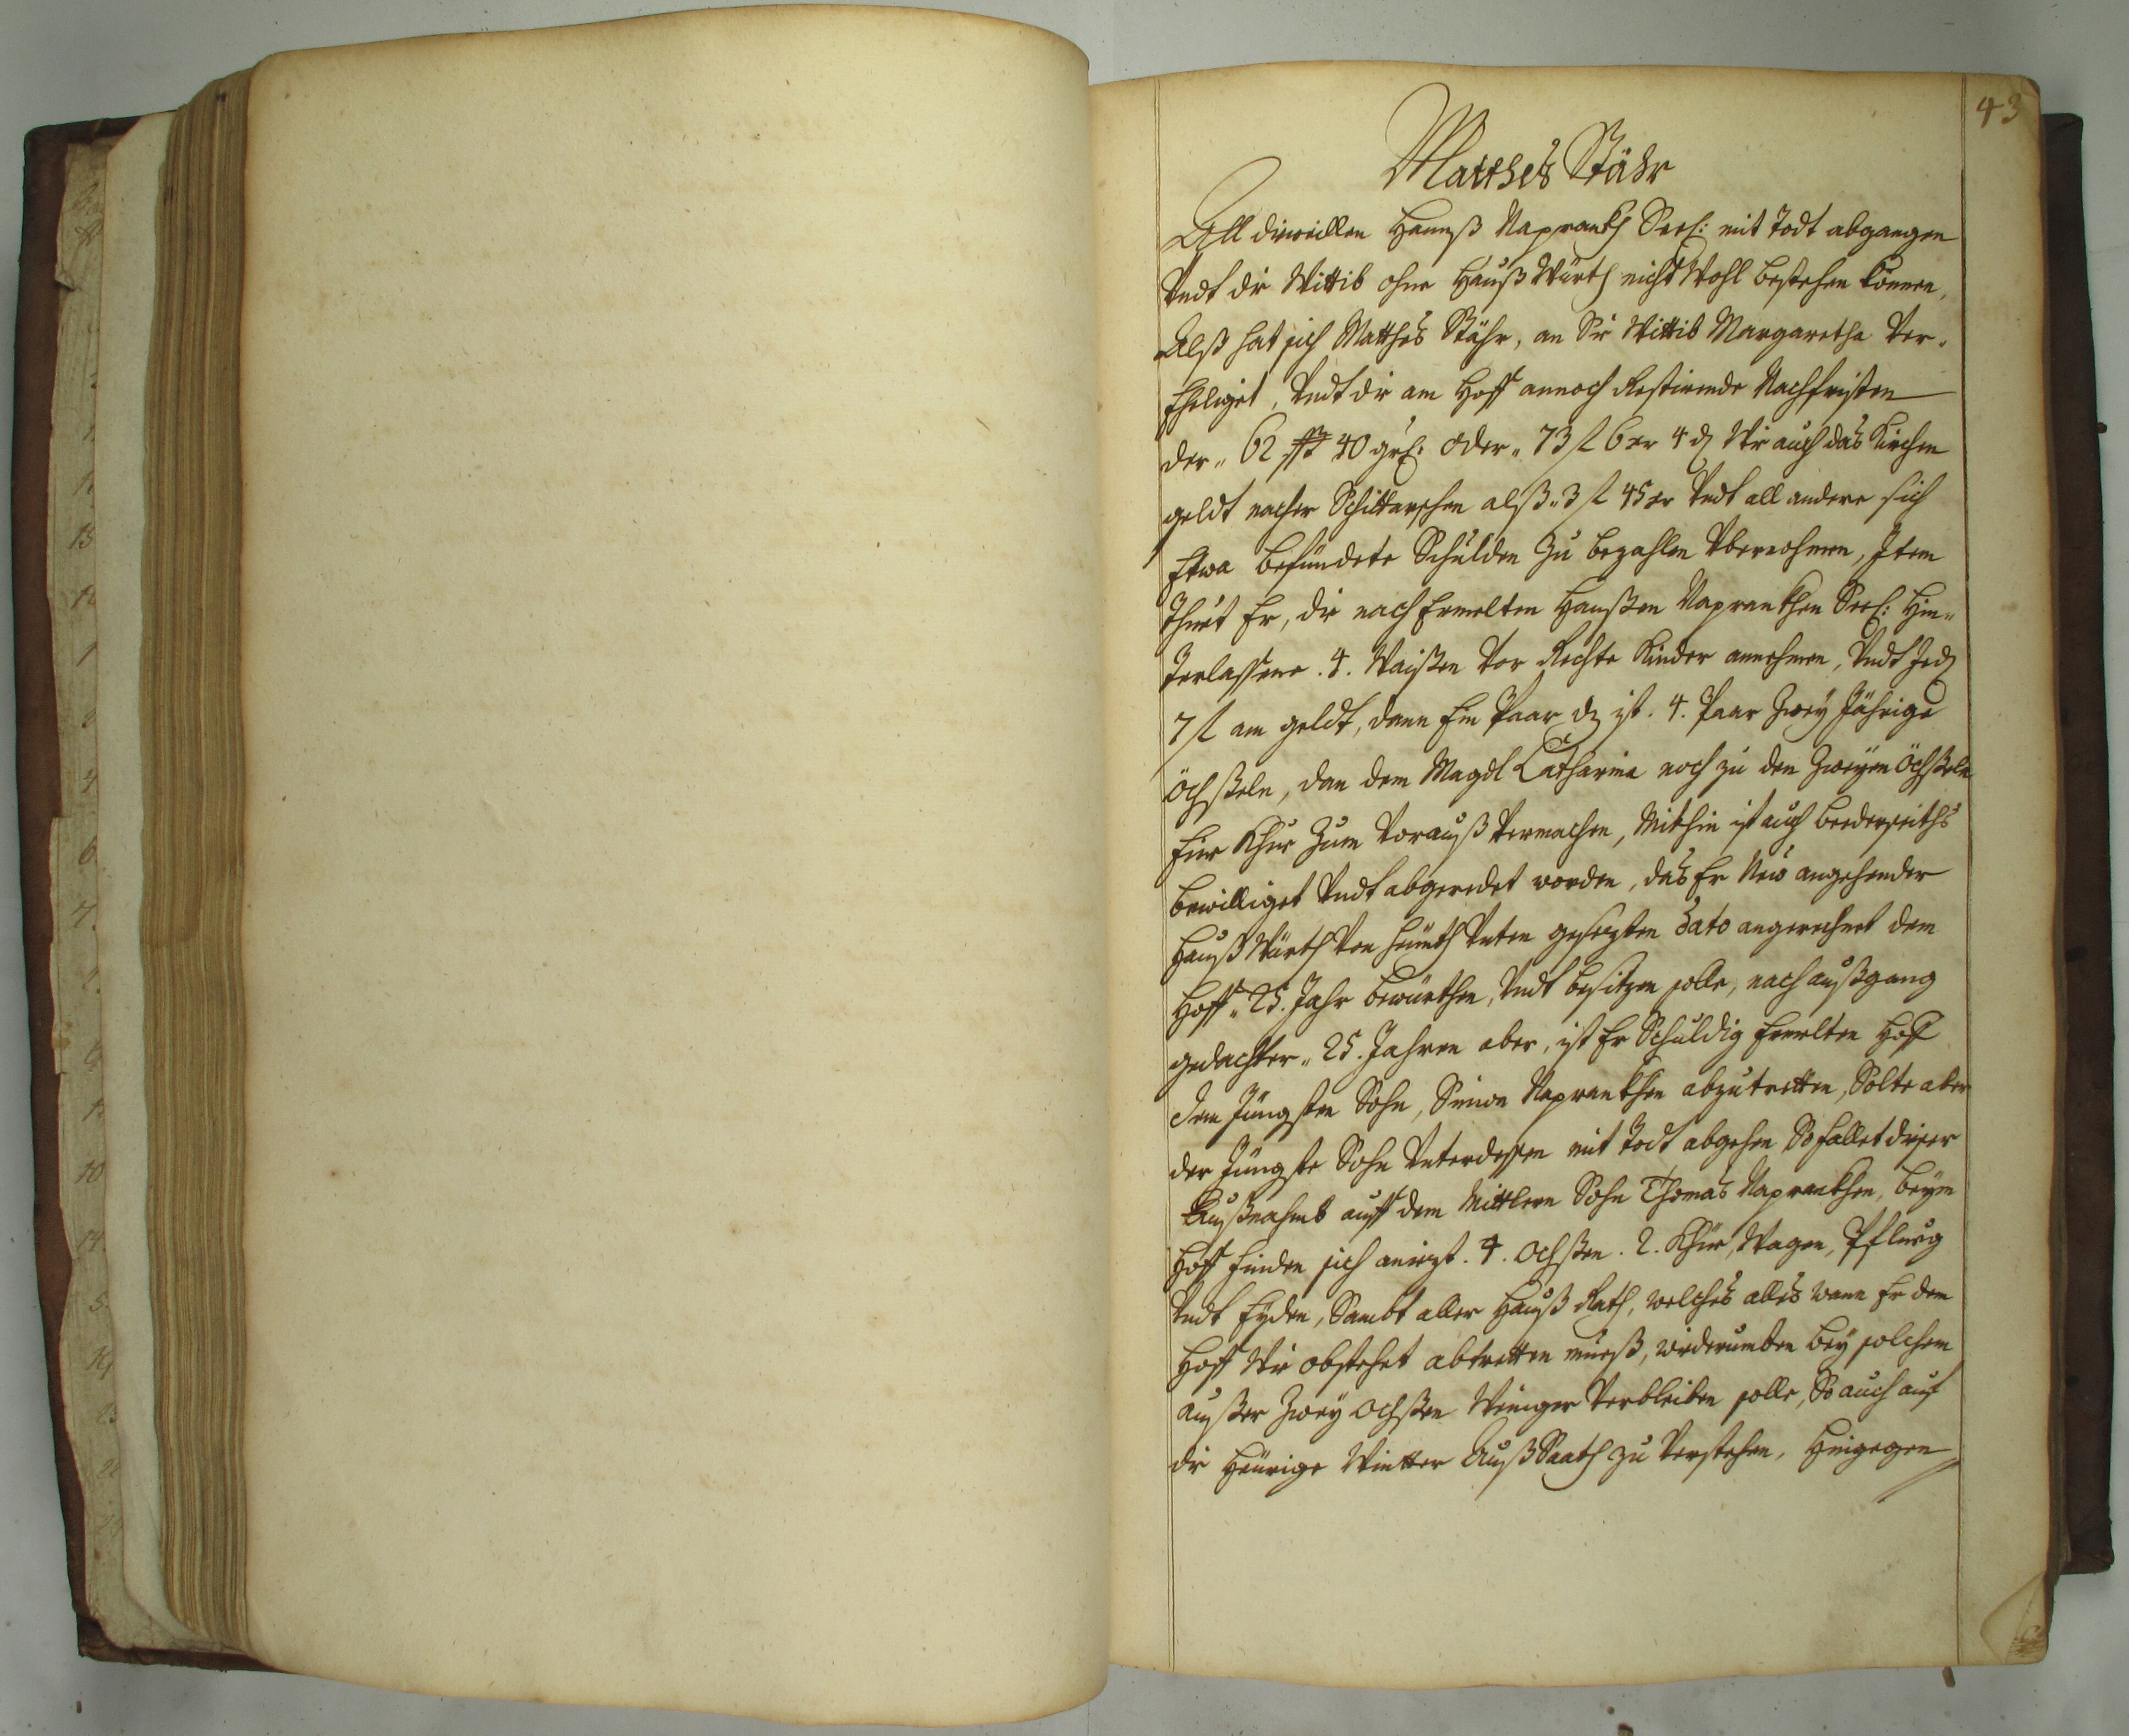 43
Matthes Stähr
All dieweillen Hannß Napranth Seel: mit Todt abgangen
Undt die Wittib ohne Hauß Würth nicht Wohl bestehen können,
Alß hat sich Matthes Stähr, an die Wittib Margaretha Ver-
Eheliget, Undt die am Hoff annoch Restirende Nachfristen
der " 62 ßß 40 grl: oder " 73 fl 6 xr 4 d Wie auch das Kirchen
geldt nacher Schittarschen alß " 3 fl 45 xr Undt all andere sich
Etwa befündete Schulden zu bezahlen Übernohmen, Item
Thuet Er, die nach Ermelten Hanßen Napranthen Seel: Hin-
terlassene . 4 . Waißen Vor Rechte Kinder annehmen, Undt Jed
7 fl am geldt, dann Ein Paar dz ist . 4 . Paar Zwey Jährige
Öchßeln, dan dem Magdl Catharina noch zu den Zweyen Öchßeln
Eine Khue Zum Vorauß Vermachen, Mithin ist auch beederseiths
bewilliget Undt abgeredet worden, das Er New angehender
Hauß Würth Von heunth Unten gesezten Dato angerechnet den
Hoff " 25 . Jahr bewürthen, Undt besitzen solle, nach außgang
gedachter " 25 . Jahren aber, ist Er Schuldig Ermelten Hoff
dem Jüngsten Sohn, Simon Napranthen abzutretten, Solte aber
der Jüngste Sohn Unterdessen mit Todt abgehen So fallet dieser
Außnahmb auff dem Mittlern Sohn Thomas Napranthen, beym
Hoff finden sich aniezt . 4 . Ochßen . 2 . Khüe, Wagen, Pflueg
Undt Eyden, Sambt aller Hauß Rath, welches alles wann Er den
Hoff Wie obstehet abtretten mueß, wiederumben bey solchem
außer Zwey Ochßen Weniger Verbleiben solle, So auch auf
die Heurige Wintter Auß Saath zu Verstehen, Hingegen